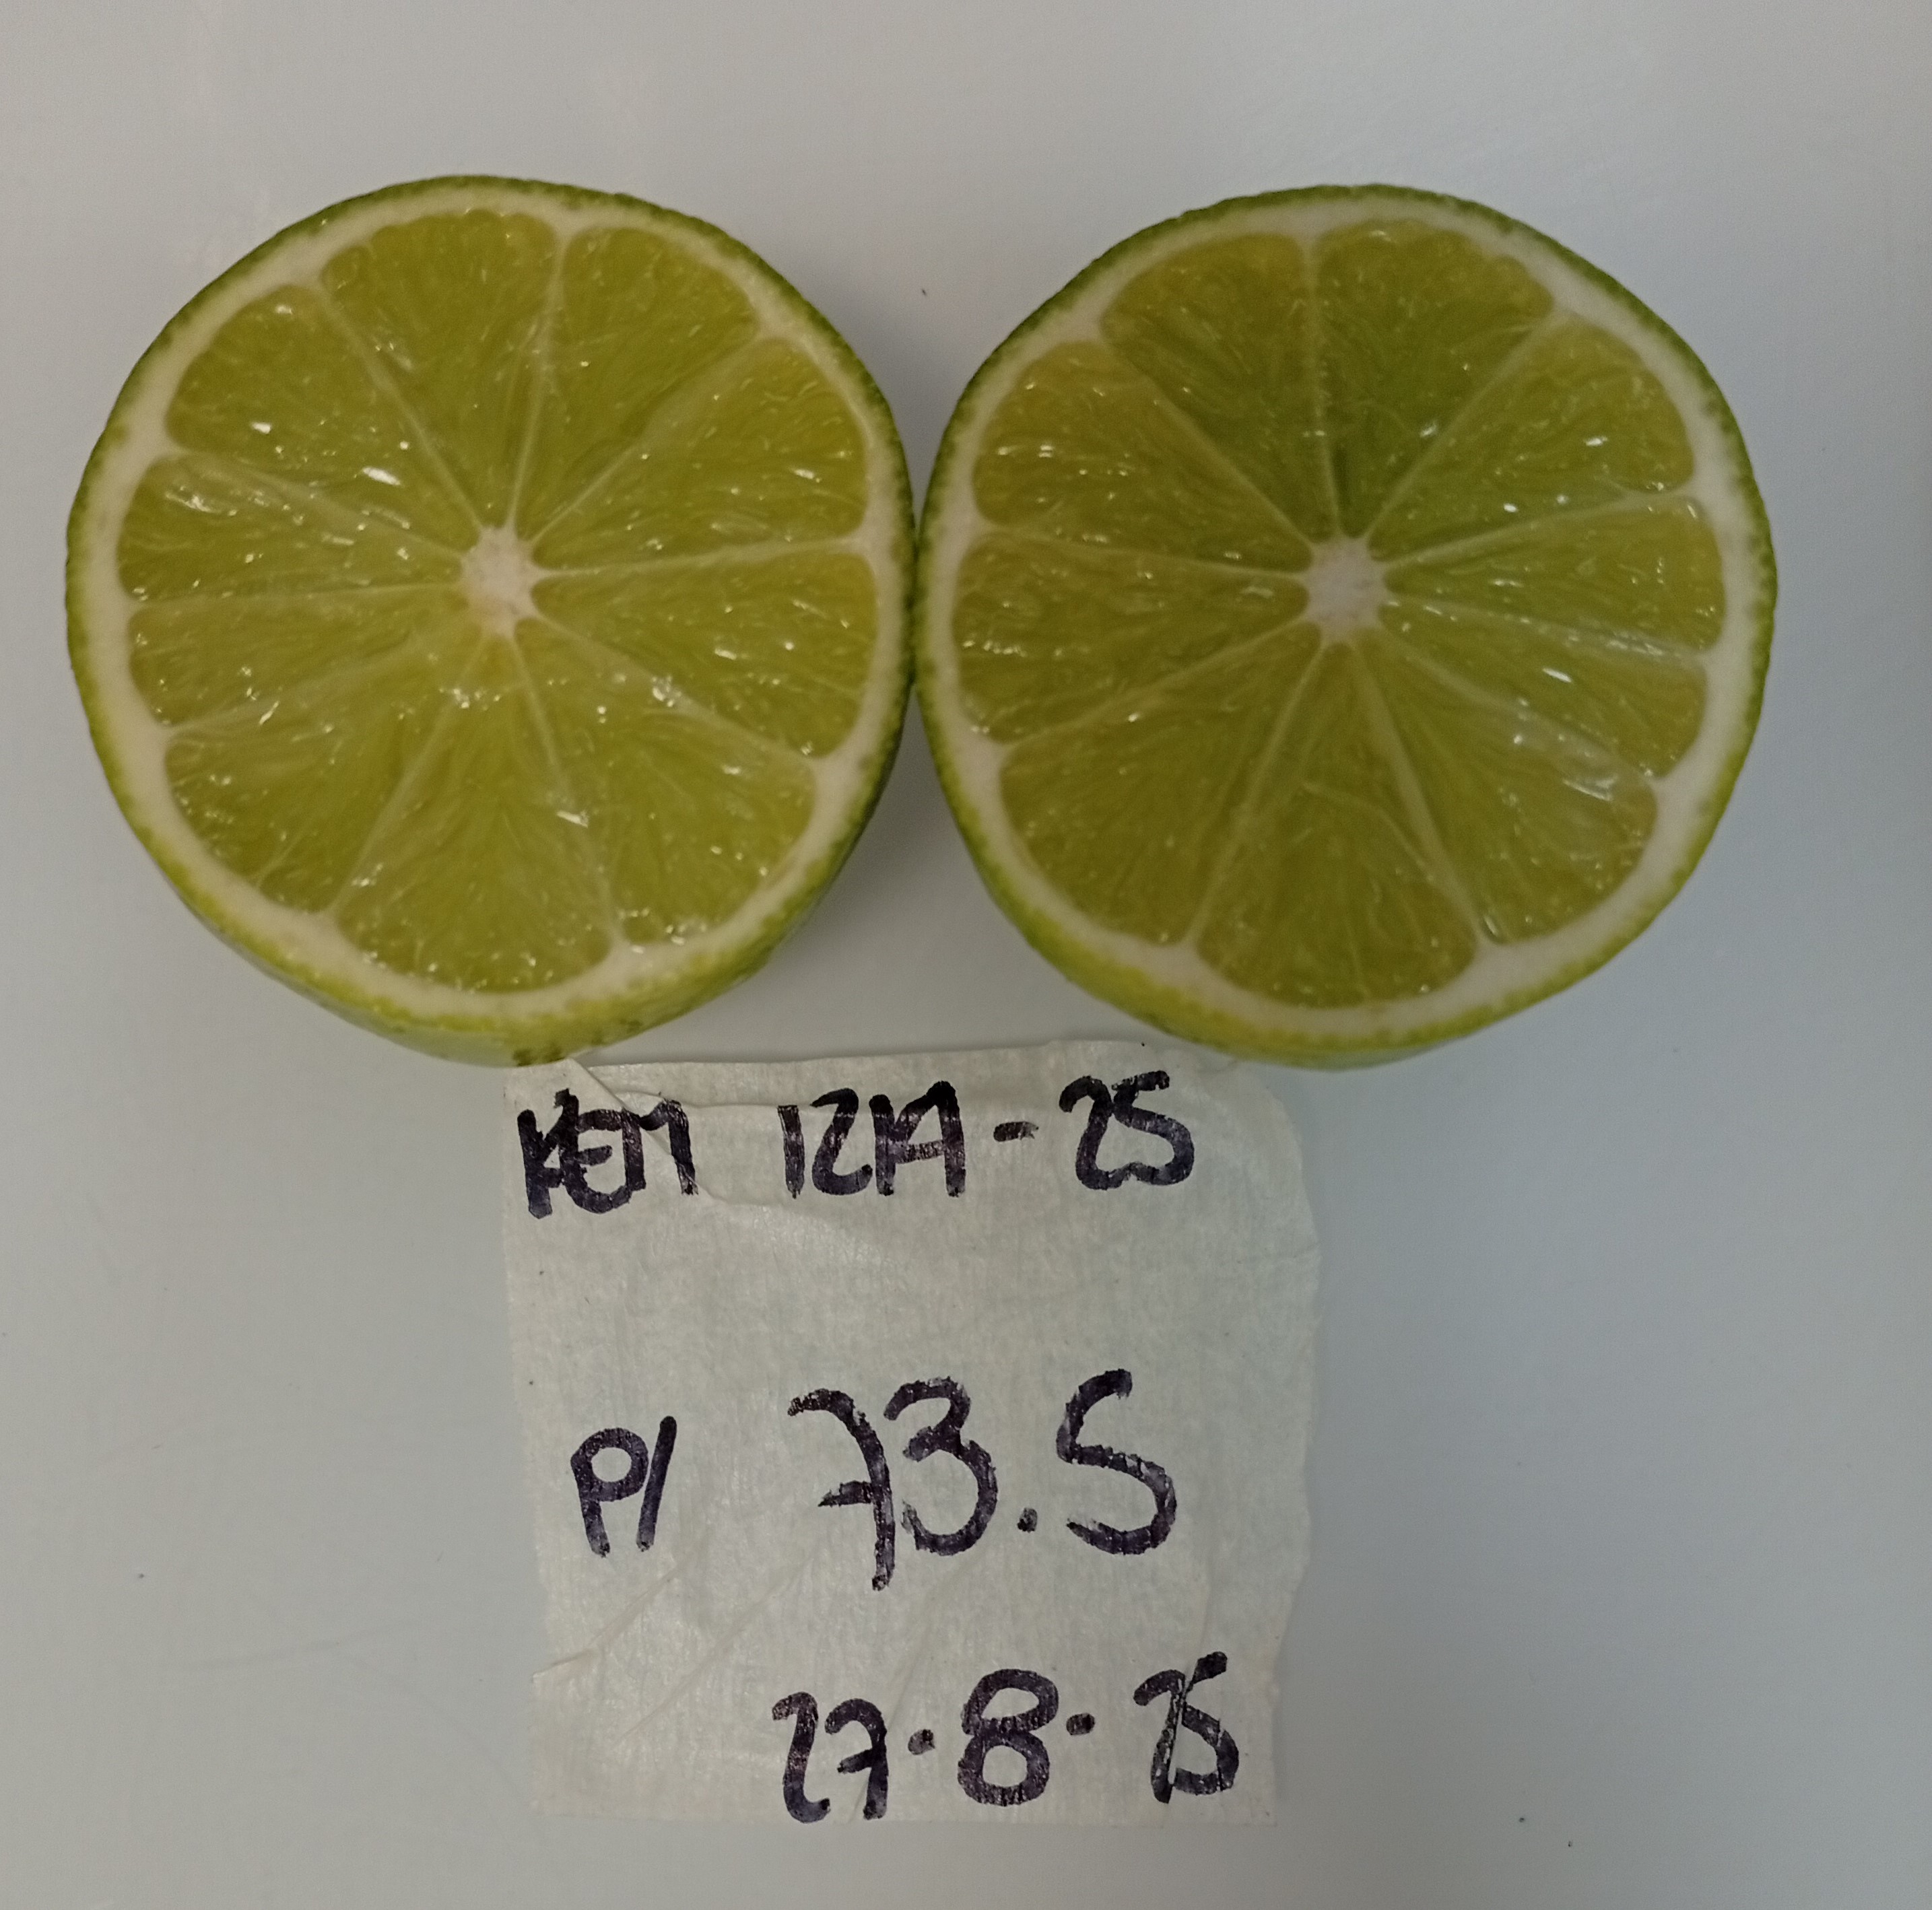 KEM 12A-25
P/ 73.5
27.8.25